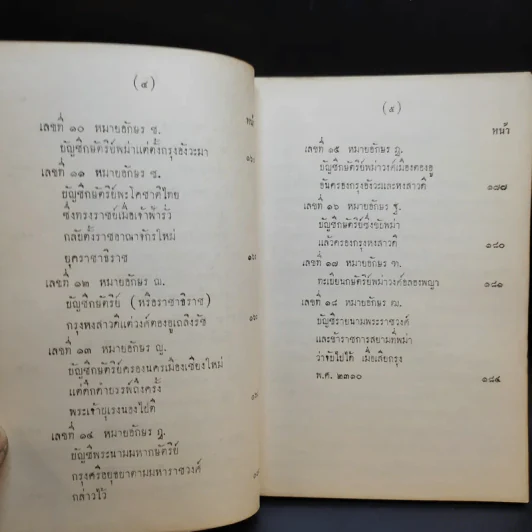 (๔)
หน้า
เลขที่ ๑๐ หมายอักษร ซ.
บัญชีกษัตริย์พม่าแต่ตั้งกรุงอังวะมา
เลขที่ ๑๑ หมายอักษร ซ.
บัญชีกษัตริย์พระโคชาติไทย
ซึ่งทรงราชย์เมื่อเจ้าฟ้ารั่ว
กลับตั้งราชอาณาจักรใหม่
ยุคราชาธิราช
เลขที่ ๑๒ หมายอักษร ฌ.
บัญชีกษัตริย์ (หรือราชาธิราช)
กรุงหงสาวดีแต่วงศ์ตองอูเถลิงรัช
เลขที่ ๑๓ หมายอักษร ญ.
บัญชีกษัตริย์ครองนครเมืองเชียงใหม่
แต่ดึกดำบรรพ์ถึงครั้ง
พระเจ้าบุเรงนองไปตี
เลขที่ ๑๔ หมายอักษร ฎ.
บัญชีพระนามมหากษัตริย์
กรุงศรีอยุธยาตามมหาราชวงศ์
กล่าวไว้
(๕)
หน้า
เลขที่ ๑๕ หมายอักษร ฏ.
บัญชีกษัตริย์พม่าวงศ์เมืองตองอู
อันครองกรุงอังวะและหงสาวดี ๑๗๘
เลขที่ ๑๖ หมายอักษร ฐ.
บัญชีกษัตริย์ซึ่งขัยพม่า
แล้วครองกรุงหงสาวดี ๑๘๐
เลขที่ ๑๗ หมายอักษร ฑ.
ทะเบียนกษัตริย์พม่าวงศ์อลองพญา ๑๘๑
เลขที่ ๑๘ หมายอักษร ฒ.
บัญชีรายนามพระราชวงศ์
และข้าราชการสยามที่พม่า
ว่าจับไปได้ เมื่อเสียกรุง
พ.ศ. ๒๓๑๐ ๑๘๔